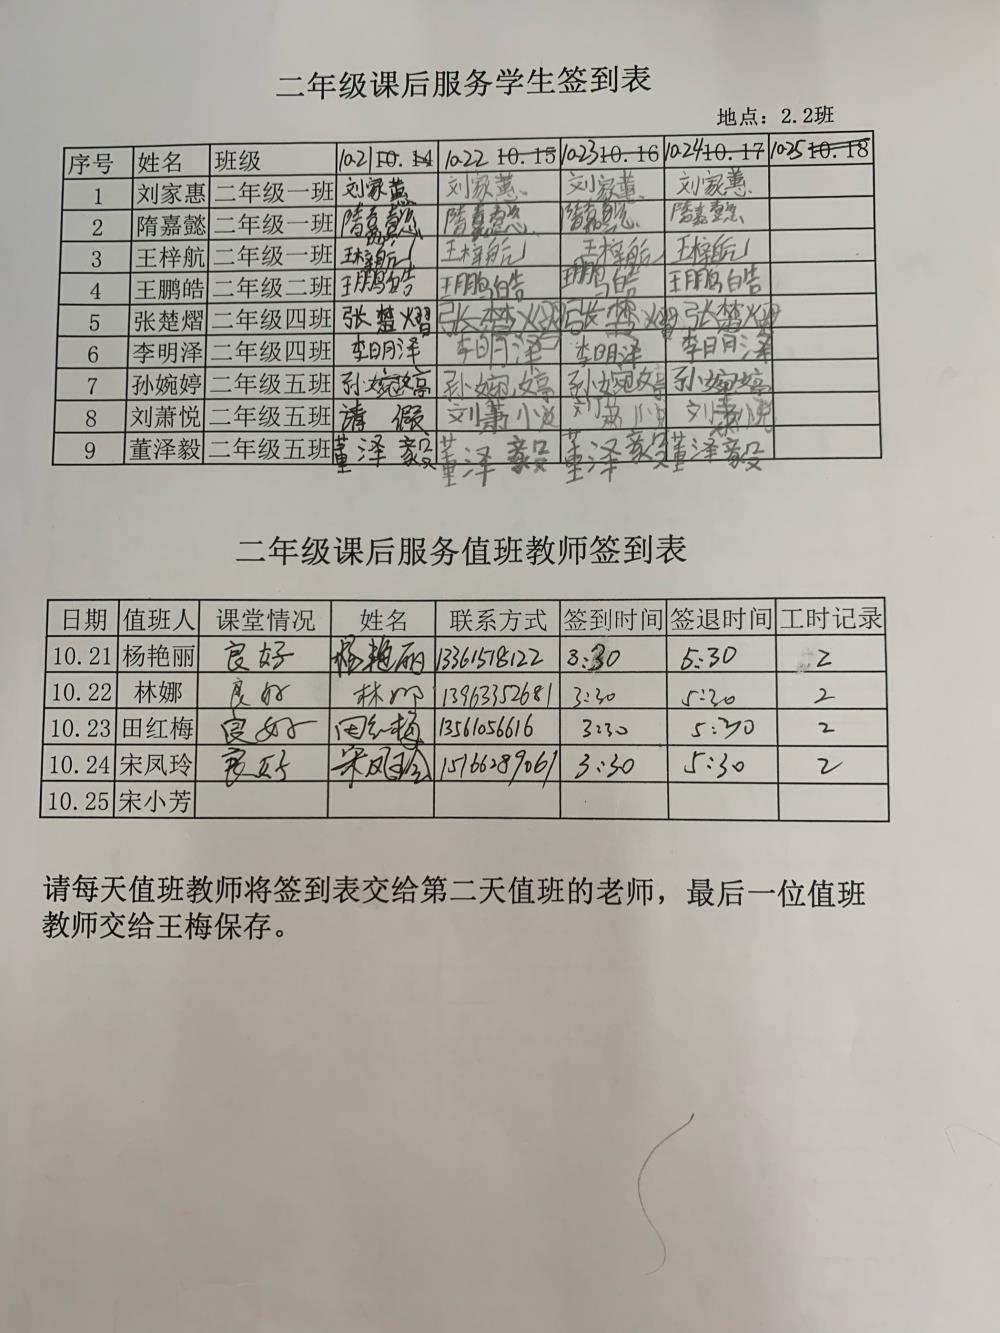 二年级课后服务学生签到表
地点：2.2班
序号 姓名 班级 10.21 10.14 10.22 10.15 10.23 10.16 10.24 10.17 10.25 10.18
1 刘家惠 二年级一班 刘家蕙 刘家蕙 刘家蕙 刘家蕙
2 隋嘉懿 二年级一班 隋嘉懿 隋嘉懿 隋嘉懿 隋嘉懿
3 王梓航 二年级一班 王梓航 王梓航 王梓航 王梓航
4 王鹏皓 二年级二班 王鹏皓 王鹏皓 王鹏皓 王鹏皓
5 张楚熠 二年级四班 张楚熠 张楚熠 张楚熠 张楚熠
6 李明泽 二年级四班 李明泽 李明泽 李明泽 李明泽
7 孙婉婷 二年级五班 孙婉婷 孙婉婷 孙婉婷 孙婉婷
8 刘萧悦 二年级五班 请假 刘萧悦 刘萧悦 刘萧悦
9 董泽毅 二年级五班 董泽毅 董泽毅 董泽毅 董泽毅
二年级课后服务值班教师签到表
日期 值班人 课堂情况 姓名 联系方式 签到时间 签退时间 工时记录
10.21 杨艳丽 良好 杨艳丽 13361518122 3:30 5:30 2
10.22 林娜 良好 林娜 13963352681 3:30 5:30 2
10.23 田红梅 良好 田红梅 13561056616 3:30 5:30 2
10.24 宋凤玲 良好 宋凤玲 15166289061 3:30 5:30 2
10.25 宋小芳
请每天值班教师将签到表交给第二天值班的老师，最后一位值班
教师交给王梅保存。